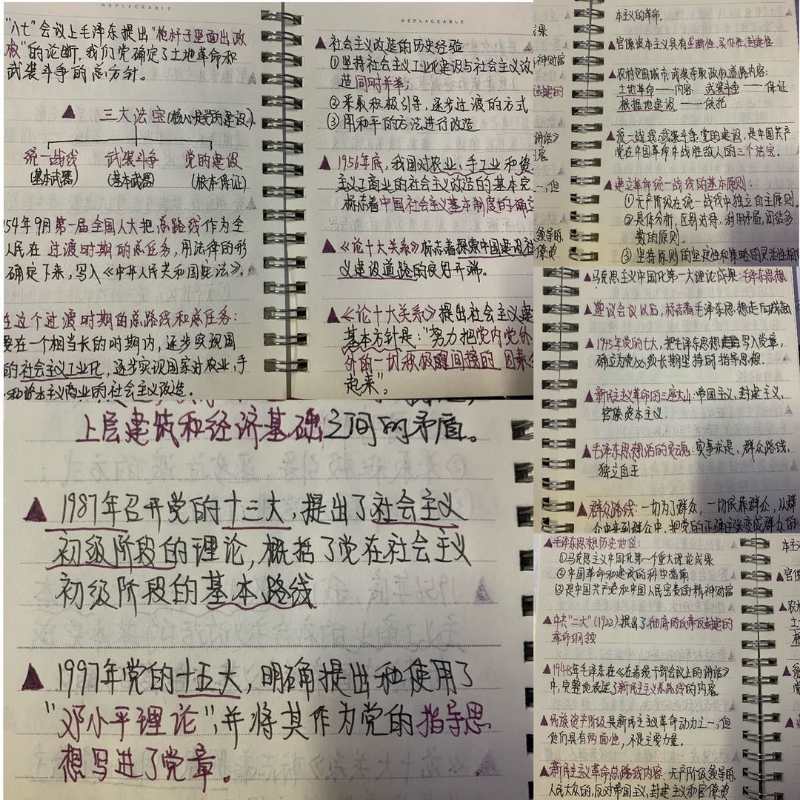 "八七"会议上毛泽东提出"枪杆子里面出政
权"的论断,我们党确定了土地革命和
武装斗争的总方针。
▲ 三大法宝(核心是党的建设)
统一战线 武装斗争 党的建设
(基本武器) (基本武器) (根本保证)
54年9月第一届全国人大把总路线作为全
人民在过渡时期的总任务,用法律的形
确定下来,写入《中华人民共和国宪法》。
在这个过渡时期的总路线和总任务:
要在一个相当长的时期内,逐步实现国
的社会主义工业化,逐步实现国家对农业,手
和资本主义商业的社会主义改造。
REPLACEABLE
▲社会主义改造的历史经验
①坚持社会主义工业化建设与社会主义改
造同时并举;
②采取积极引导,逐步过渡的方式
③用和平的方法进行改造
▲1956年底,我国对农业,手工业和资
主义工商业的社会主义改造的基本完
标志着中国社会主义基本制度的确立
▲《论十大关系》标志着探索中国建设社
义建设道路的良好开端。
▲《论十大关系》提出社会主义建
基本方针是:"努力把党内党外
外的一切积极
起来"。
上层建筑和经济基础之间的矛盾。
▲1987年召开党的十三大,提出了社会主义
初级阶段的理论,概括了党在社会主义
初级阶段的基本路线
▲1997年党的十五大,明确提出和使用了
"邓小平理论",并将其作为党的指导思
想写进了党章。
本主义的革命。
▲官僚资本主义具有
▲农村包围城市,武装夺取政权道路内容:
土地革命——内容 武装斗争——保证
根据地建设——依托
▲统一战线,武装斗争,党的建设,是中国共产
党在中国革命中战胜敌人的三个法宝。
▲建立革命统一战线的基本原则:
①无产阶级在统一战线中独立自主原则
数的原则。
③坚持原则的坚定性和策略的灵活性相
马克思主义中国化第一大理论成果:毛泽东思想
▲遵义会议以后,标志着毛泽东思想走向成熟
▲1945年党的七大,把毛泽东思想写入党章,
确立为党必须长期坚持的指导思想。
▲新民主义革命的三座大山:帝国主义,封建主义,
官僚资本主义
▲毛泽东思想活的灵魂:实事求是,群众路线,
独立自主
▲群众路线:一切为了群众,一切依靠群众,从群
众中来到群众中,把党的正确主张变成群众的
▲毛泽东思想历史地位:
①马克思主义中国化第一个重大理论成果
②中国革命和建设的科学指南
③是中国共产党和中国人民宝贵的精神财富
▲中共"二大"(1922)提出了彻底的反帝反封建的
革命纲领
▲1948年毛泽东《在晋绥干部会议上的讲话》
中,完整地表述了新民主主义总路线的内容。
▲民族资产阶级是新民主革命动力之一,但
他们具有两面性,不是主要力量。
▲新民主义革命总路线内容:无产阶级领导的,
人民大众的,反对帝国主义,封建主义和官僚资